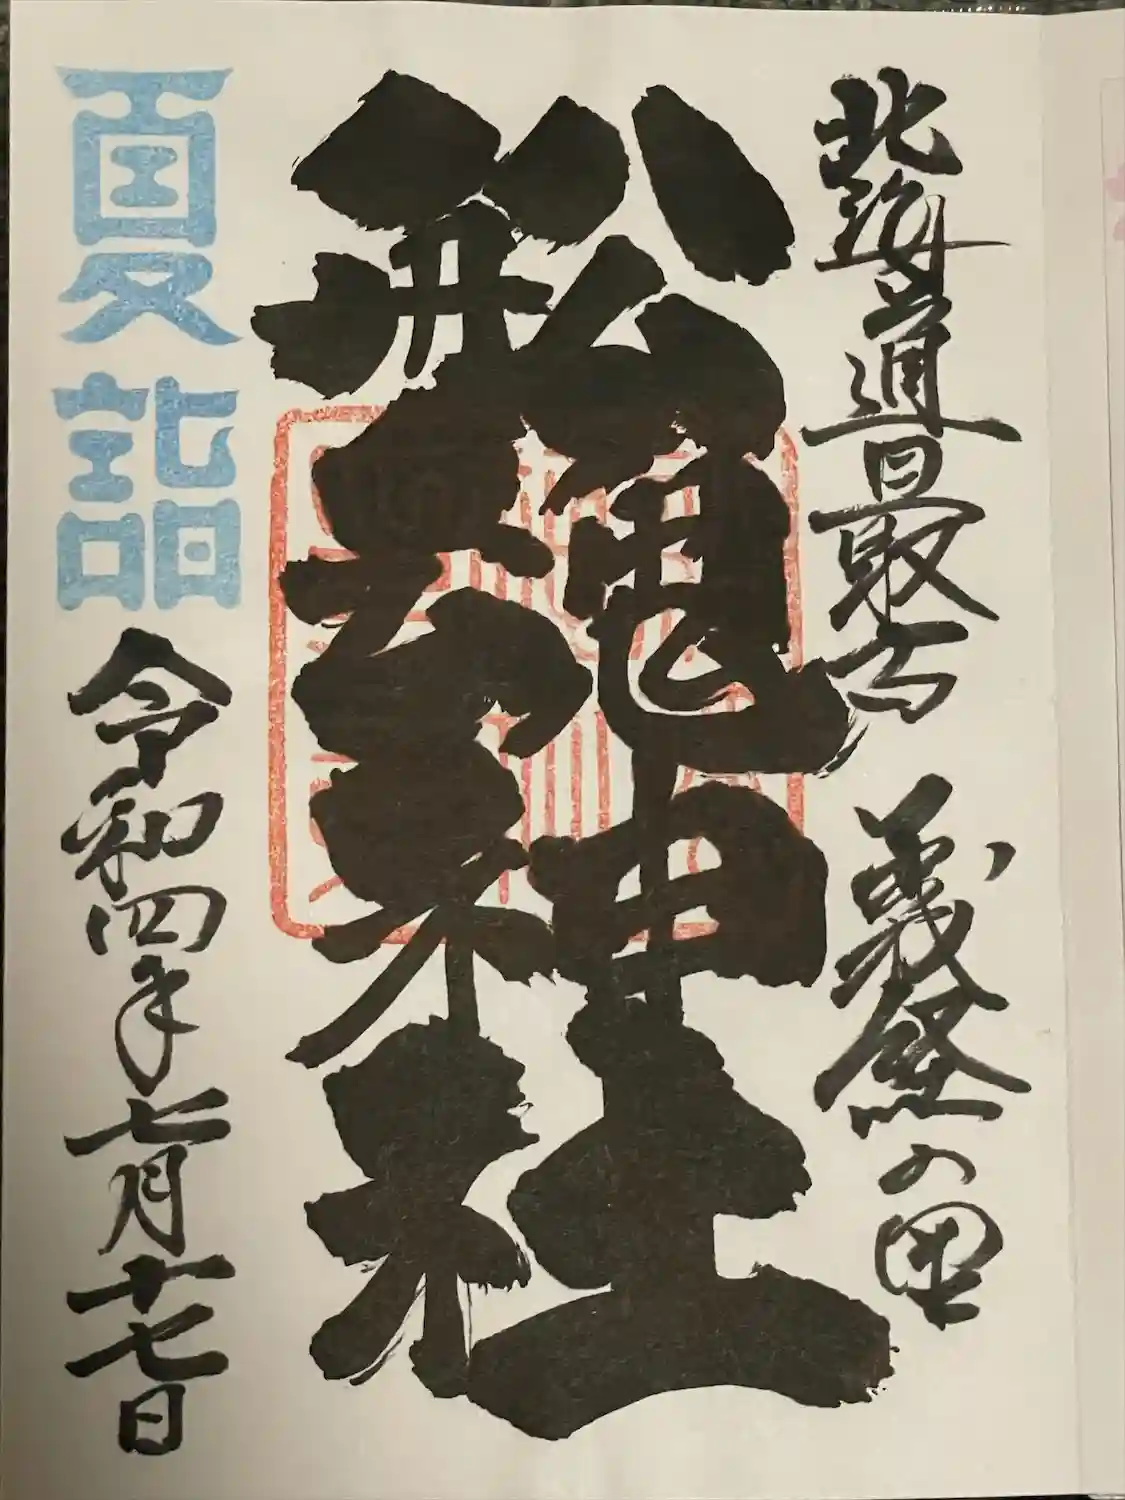 北海道最古 義経の里
舩魂神社
夏詣
令和四年七月十七日